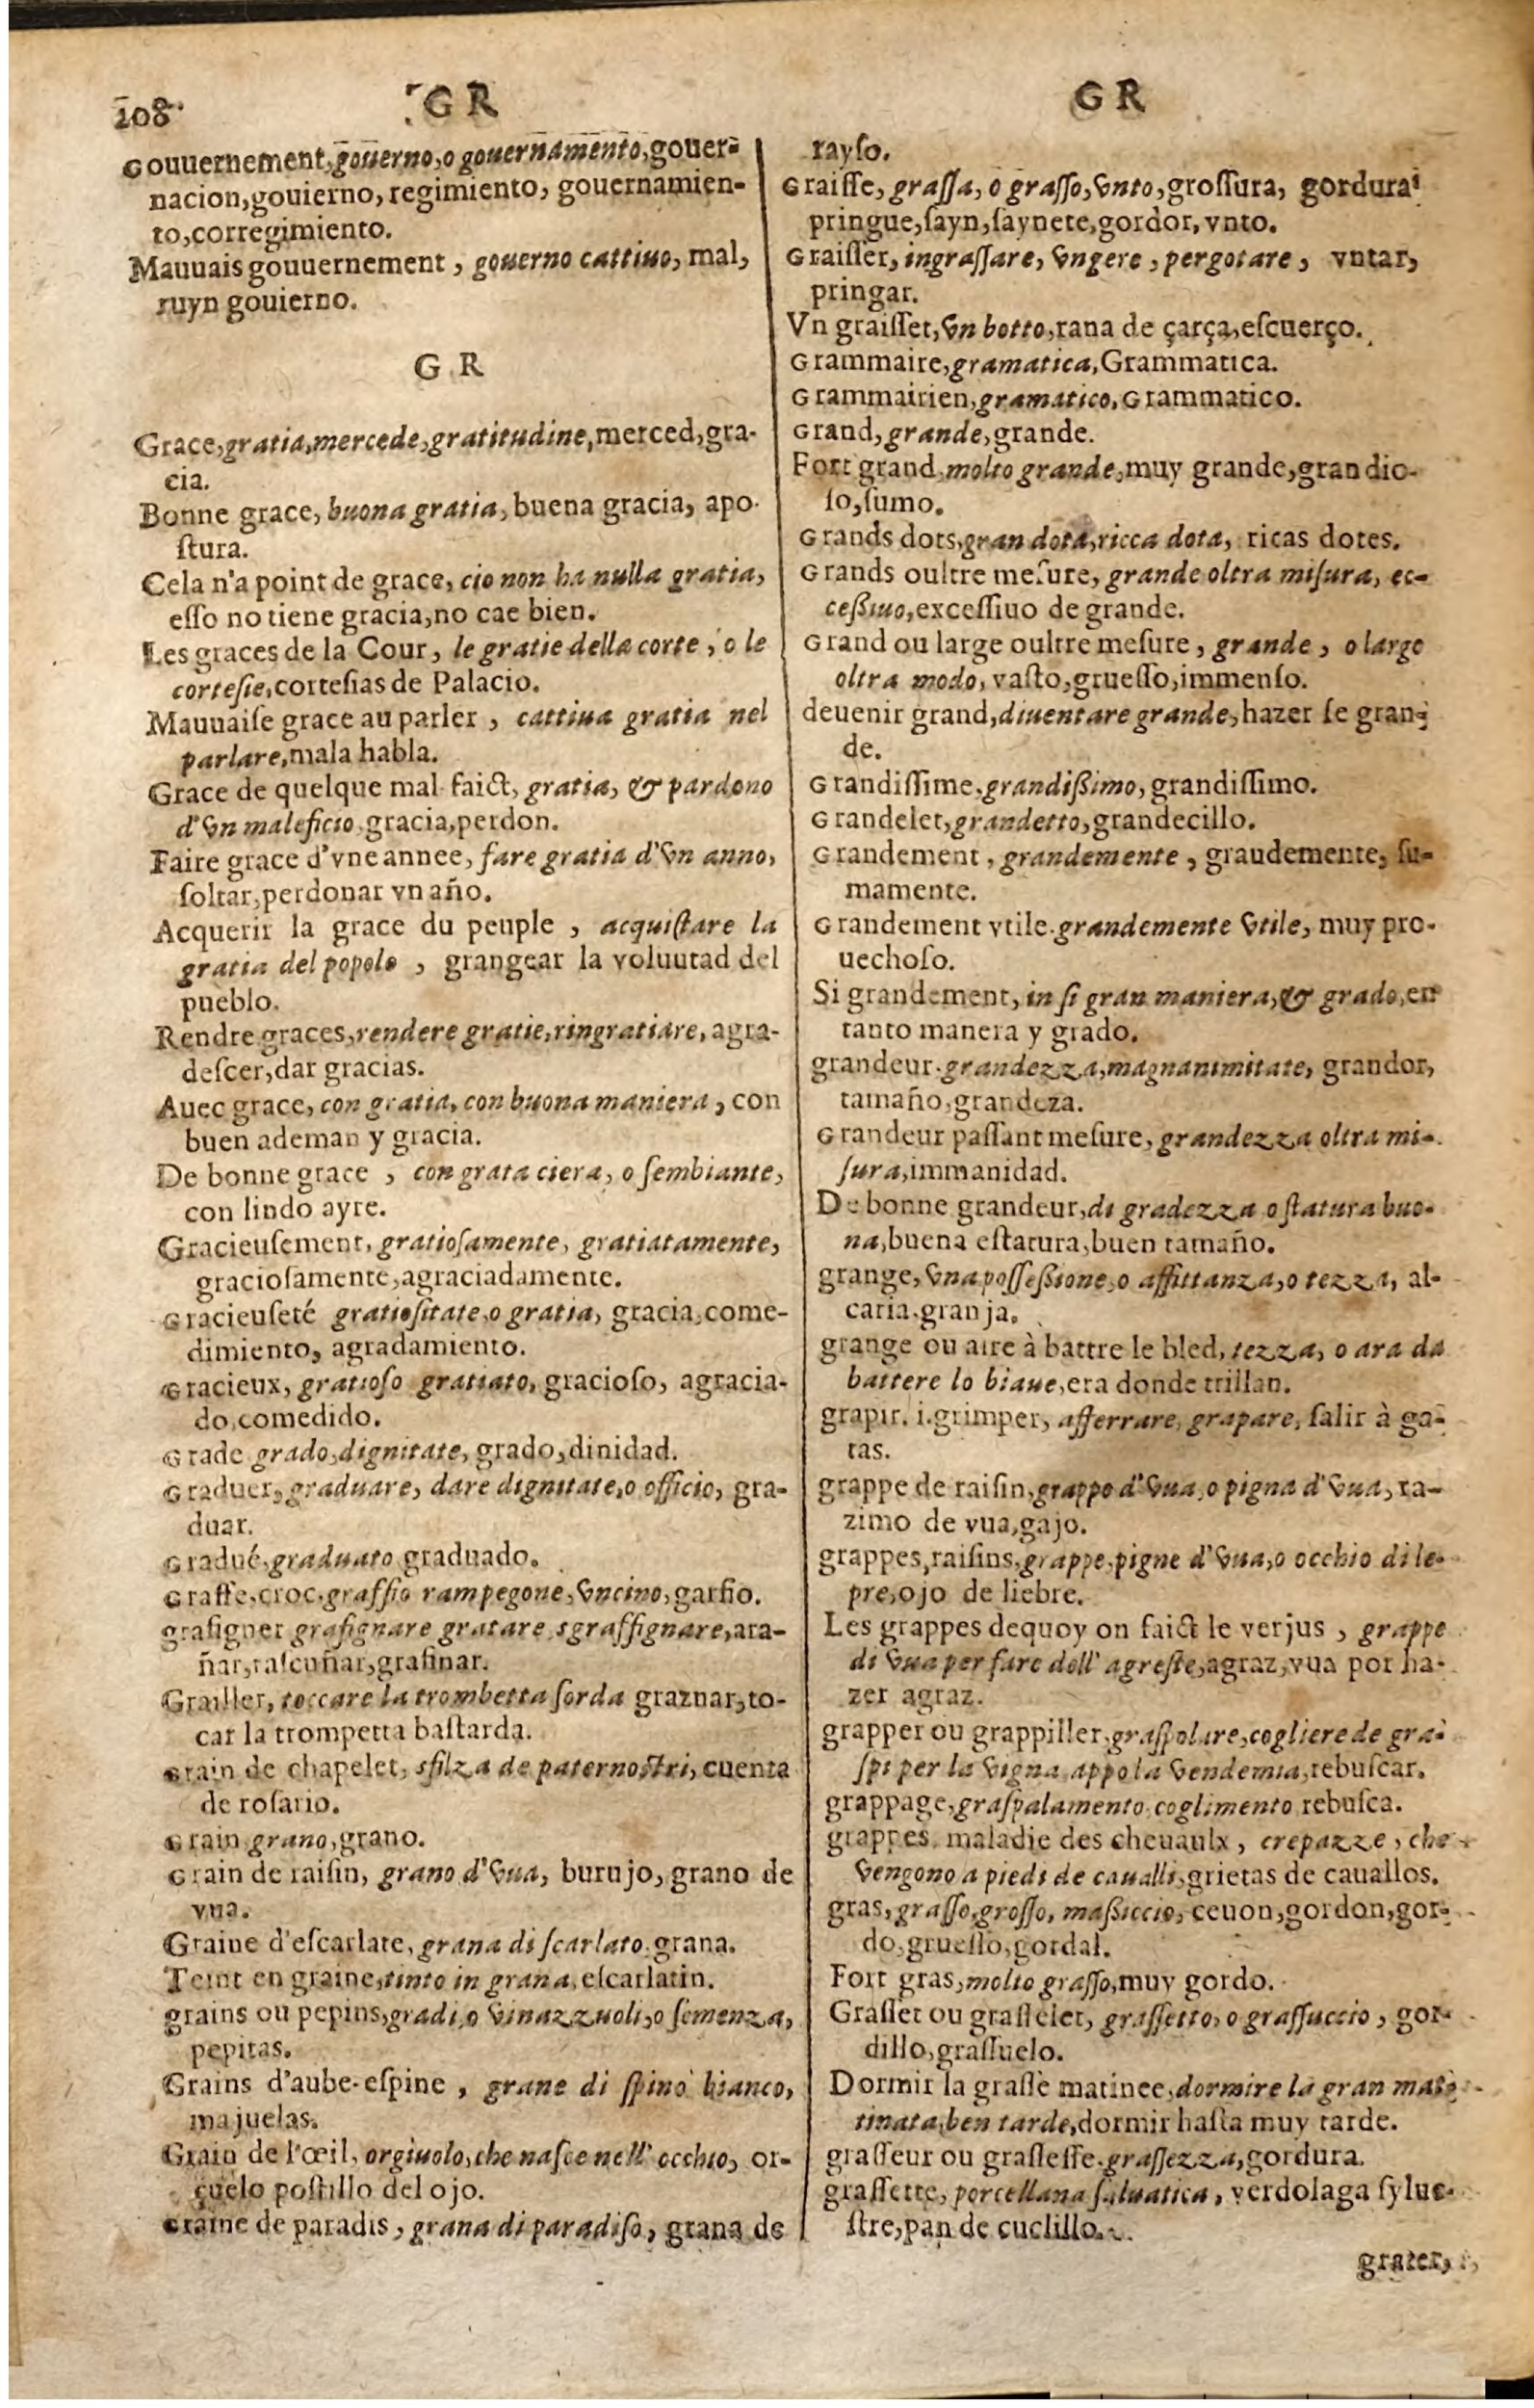 108 GR GR
Gouuernement, gouerno, o gouernamento, gouer-
nacion, gouierno, regimiento, gouernamien-
to, corregimiento.
Mauuais gouuernement, gouerno cattiuo, mal,
ruyn gouierno.
GR
Grace, gratia, mercede, gratitudine, merced, gra-
cia.
Bonne grace, buona gratia, buena gracia, apo-
ſtura.
Cela n'a point de grace, cio non ha nulla gratia,
eſſo no tiene gracia, no cae bien.
Les graces de la Cour, le gratie della corte, o le
corteſie, corteſias de Palacio.
Mauuaiſe grace au parler, cattiua gratia nel
parlare, mala habla.
Grace de quelque mal faict, gratia, & pardono
d'vn maleficio, gracia, perdon.
Faire grace d'vne annee, fare gratia d'vn anno,
ſoltar, perdonar vn año.
Acquerir la grace du peuple, acquiſtare la
gratia del popolo, grangear la voluutad del
pueblo.
Rendre graces, rendere gratie, ringratiare, agra-
deſcer, dar gracias.
Auec grace, con gratia, con buona maniera, con
buen ademan y gracia.
De bonne grace, con grata ciera, o ſembiante,
con lindo ayre.
Gracieuſement, gratioſamente, gratiatamente,
gracioſamente, agraciadamente.
Gracieuſeté gratioſitate, o gratia, gracia, come-
dimiento, agradamiento.
Gracieux, gratioſo gratiato, gracioſo, agracia-
do, comedido.
Grade grado, dignitate, grado, dinidad.
Graduer, graduare, dare dignitate, o officio, gra-
duar.
Gradué, graduato graduado.
Graffe, croc. graffio rampegone, vncino, garfio.
grafigner grafignare gratare sgraffignare, ara-
ñar, raſcuñar, grafinar.
Grailler, toccare la trombetta ſorda graznar, to-
car la trompetta baſtarda.
Grain de chapelet, sfilza de paternoſtri, cuenta
de roſario.
Grain grano, grano.
Grain de raiſin, grano d'vua, burujo, grano de
vua.
Graiue d'eſcarlate, grana di ſcarlato, grana.
Teint en graine, tinto in grana, eſcarlatin.
grains ou pepins, gradi, o vinazzuoli, o ſemenza,
pepitas.
Grains d'aube-eſpine, grane di ſpino bianco,
majuelas.
Grain de l'œil, orgiuolo, che naſce nell' occhio, or-
çuelo poſtillo del ojo.
Graine de paradis, grana di paradiſo, grana de
rayſo.
Graiſſe, graſſa, o graſſo, vnto, groſſura, gordura
pringue, ſayn, ſaynete, gordor, vnto.
Graiſſer, ingraſſare, vngere, pergotare, vntar,
pringar.
Vn graiſſet, vn botto, rana de çarça, eſcuerço.
Grammaire, gramatica, Grammatica.
Grammairien, gramatico, Grammatico.
Grand, grande, grande.
Fort grand, molto grande, muy grande, grandio-
ſo, ſumo.
Grands dots, gran dota, ricca dota, ricas dotes.
Grands oultre meſure, grande oltra miſura, ec-
ceßiuo, exceſſiuo de grande.
Grand ou large oultre meſure, grande, o largo
oltra modo, vaſto, grueſſo, immenſo.
deuenir grand, diuentare grande, hazer ſe gran-
de.
Grandiſſime, grandißimo, grandiſſimo.
Grandelet, grandetto, grandecillo.
Grandement, grandemente, graudemente, ſu-
mamente.
Grandement vtile. grandemente vtile, muy pro-
uechoſo.
Si grandement, in ſi gran maniera, & grado, en
tanto manera y grado.
grandeur. grandezza, magnanimitate, grandor,
tamaño, grandeza.
Grandeur paſſant meſure, grandezza oltra mi-
ſura, immanidad.
De bonne grandeur, di gradezza o ſtatura buo-
na, buena eſtatura, buen tamaño.
grange, vna poſſeßione, o affittanza, o tezza, al-
caria. granja.
grange ou aire à battre le bled, tezza, o ara da
battere lo biaue, era donde trillan.
grapir. i. grimper, afferrare, grapare, ſalir à ga-
tas.
grappe de raiſin, grappo d'vua, o pigna d'vua, ra-
zimo de vua, gajo.
grappes, raiſins, grappe, pigne d'vua, o occhio di le-
pre, ojo de liebre.
Les grappes dequoy on faict le verjus, grappe
di vua per fare dell' agreſte, agraz, vua por ha-
zer agraz.
grapper ou grappiller, graſpolare, cogliere de gra-
ſpi per la vigna appo la vendemia, rebuſcar.
grappage, graſpalamento coglimento rebuſca.
grappes maladie des cheuaulx, crepazze, che
vengono a piedi de caualli, grietas de cauallos.
gras, graſſo, groſſo, maßiccio, ceuon, gordon, gor-
do, grueſſo, gordal.
Fort gras, molto graſſo, muy gordo.
Graſſet ou graſſelet, graſſetto, o graſſuccio, gor-
dillo, graſſuelo.
Dormir la graſſe matinee, dormire la gran mat-
tinata, ben tarde, dormir haſta muy tarde.
graſſeur ou graſſeſſe. graſſezza, gordura.
graſſette, porcellana ſaluatica, verdolaga ſylue-
ſtre, pan de cuclillo.
grater,